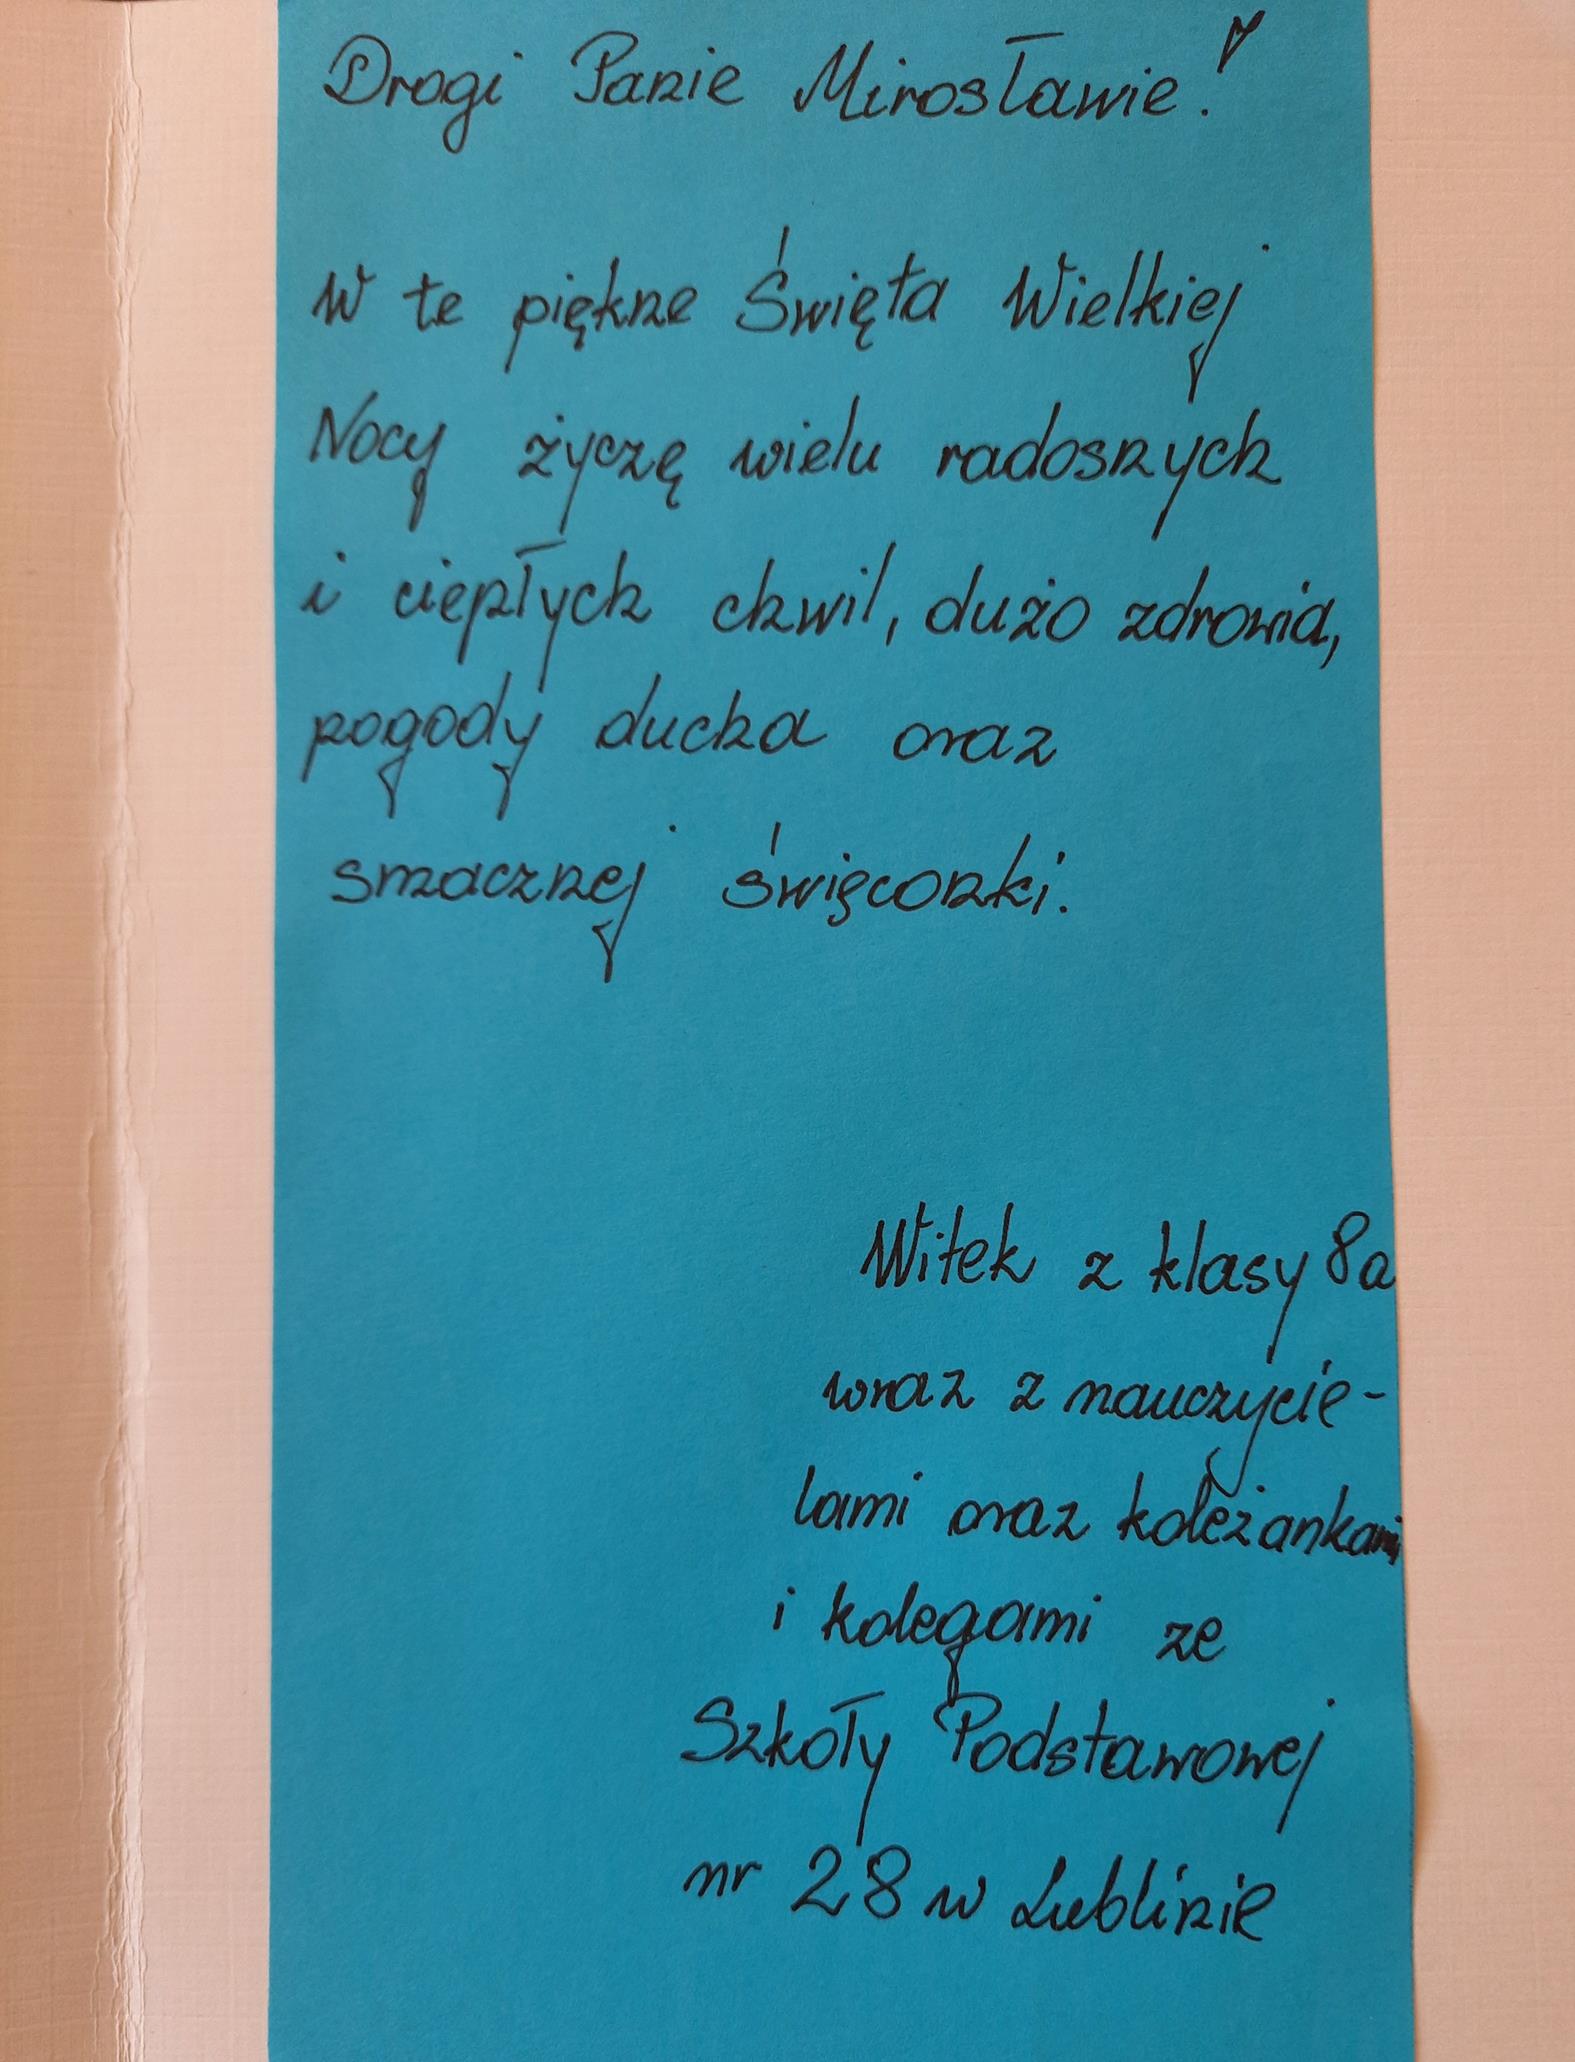 Drogi Panie Mirosławie!
W te piękne Święta Wielkiej
Nocy życzę wielu radosnych
i ciepłych chwil, dużo zdrowia,
pogody ducha oraz
smacznej święconki.
Witek z klasy 8a
wraz z nauczycie-
lami oraz koleżankami
i kolegami ze
Szkoły Podstawowej
nr 28 w Lublinie